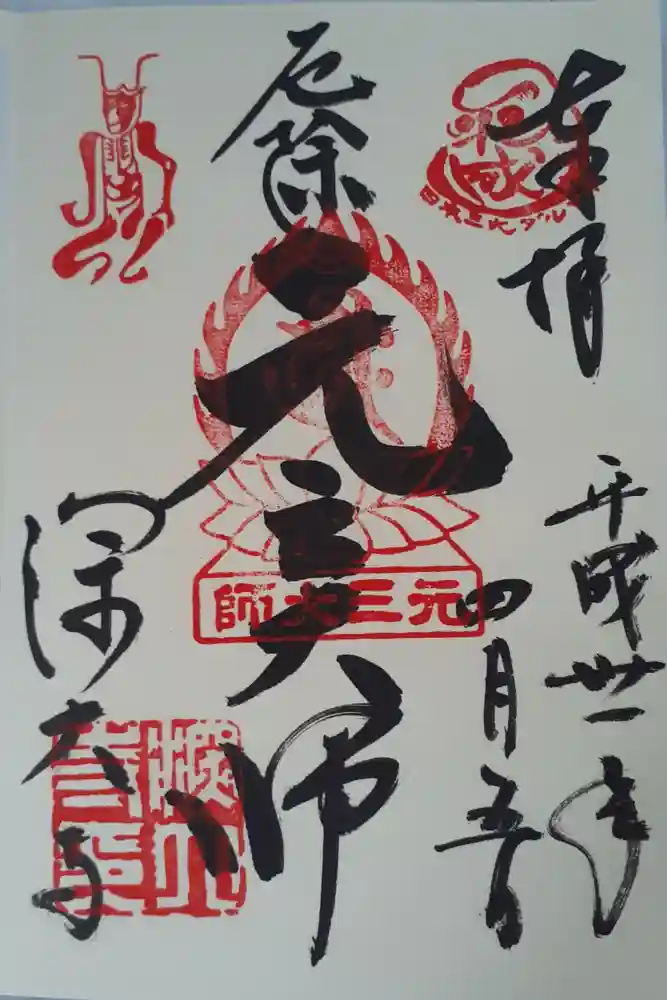 奉拝
日本三大ダル
平成卅一年
四月五日
厄除
元三大師
元三大師
深大寺